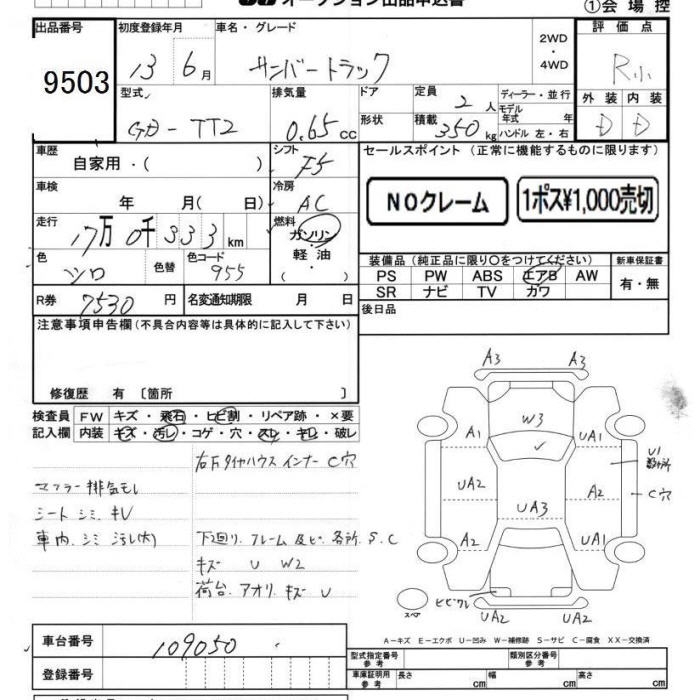 オークション出品申込書
①会場控
出品番号
9503
初度登録年月
13 6月
車名・グレード
サンバートラック
2WD
・
4WD
評価点
R小
外装 内装
D D
型式
GD-TT2
排気量
0.65cc
ドア
形状
定員
2人
積載
350kg
ディーラー・並行
モデル
年式 年
ハンドル 左・右
車歴
自家用・( )
シフト
F5
車検
年 月( 日)
冷房
AC
走行
17万0千333km
燃料
ガソリン
・
軽油
( )
色
シロ
色替
色コード
955
R券 7530円
名変通知期限 月 日
セールスポイント(正常に機能するものに限ります)
NOクレーム
1ポス¥1,000売切
装備品(純正品に限り○をつけてください)
新車保証書
PS PW ABS エアB AW
SR ナビ TV カワ
有・無
後日品
注意事項申告欄(不具合内容等は具体的に記入して下さい)
修復歴 有〔箇所 〕
検査員 FW キズ・飛石・ヒビ割・リペア跡・×要
記入欄 内装 キズ・汚レ・コゲ・穴・スレ・キレ・破レ
右Fタイヤハウス インナー C穴
マフラー排気モレ
シート シミ キレ
車内 シミ 汚レ(大)
下廻り フレーム 及ビ 各所 S.C
キズ U W2
荷台 アオリ キズ U
A3 A3
W3
A1 UA1
U1
UA2 A2 C穴
UA3
A2 UA1
ヒビワレ
スペア
UA2 UA2
A-キズ E-エクボ U-凹み W-補修跡 S-サビ C-腐食 XX-交換済
車台番号 109050
登録番号
型式指定番号
参考
類別区分番号
参考
車庫証明用
参考
長さ cm 幅 cm 高さ cm